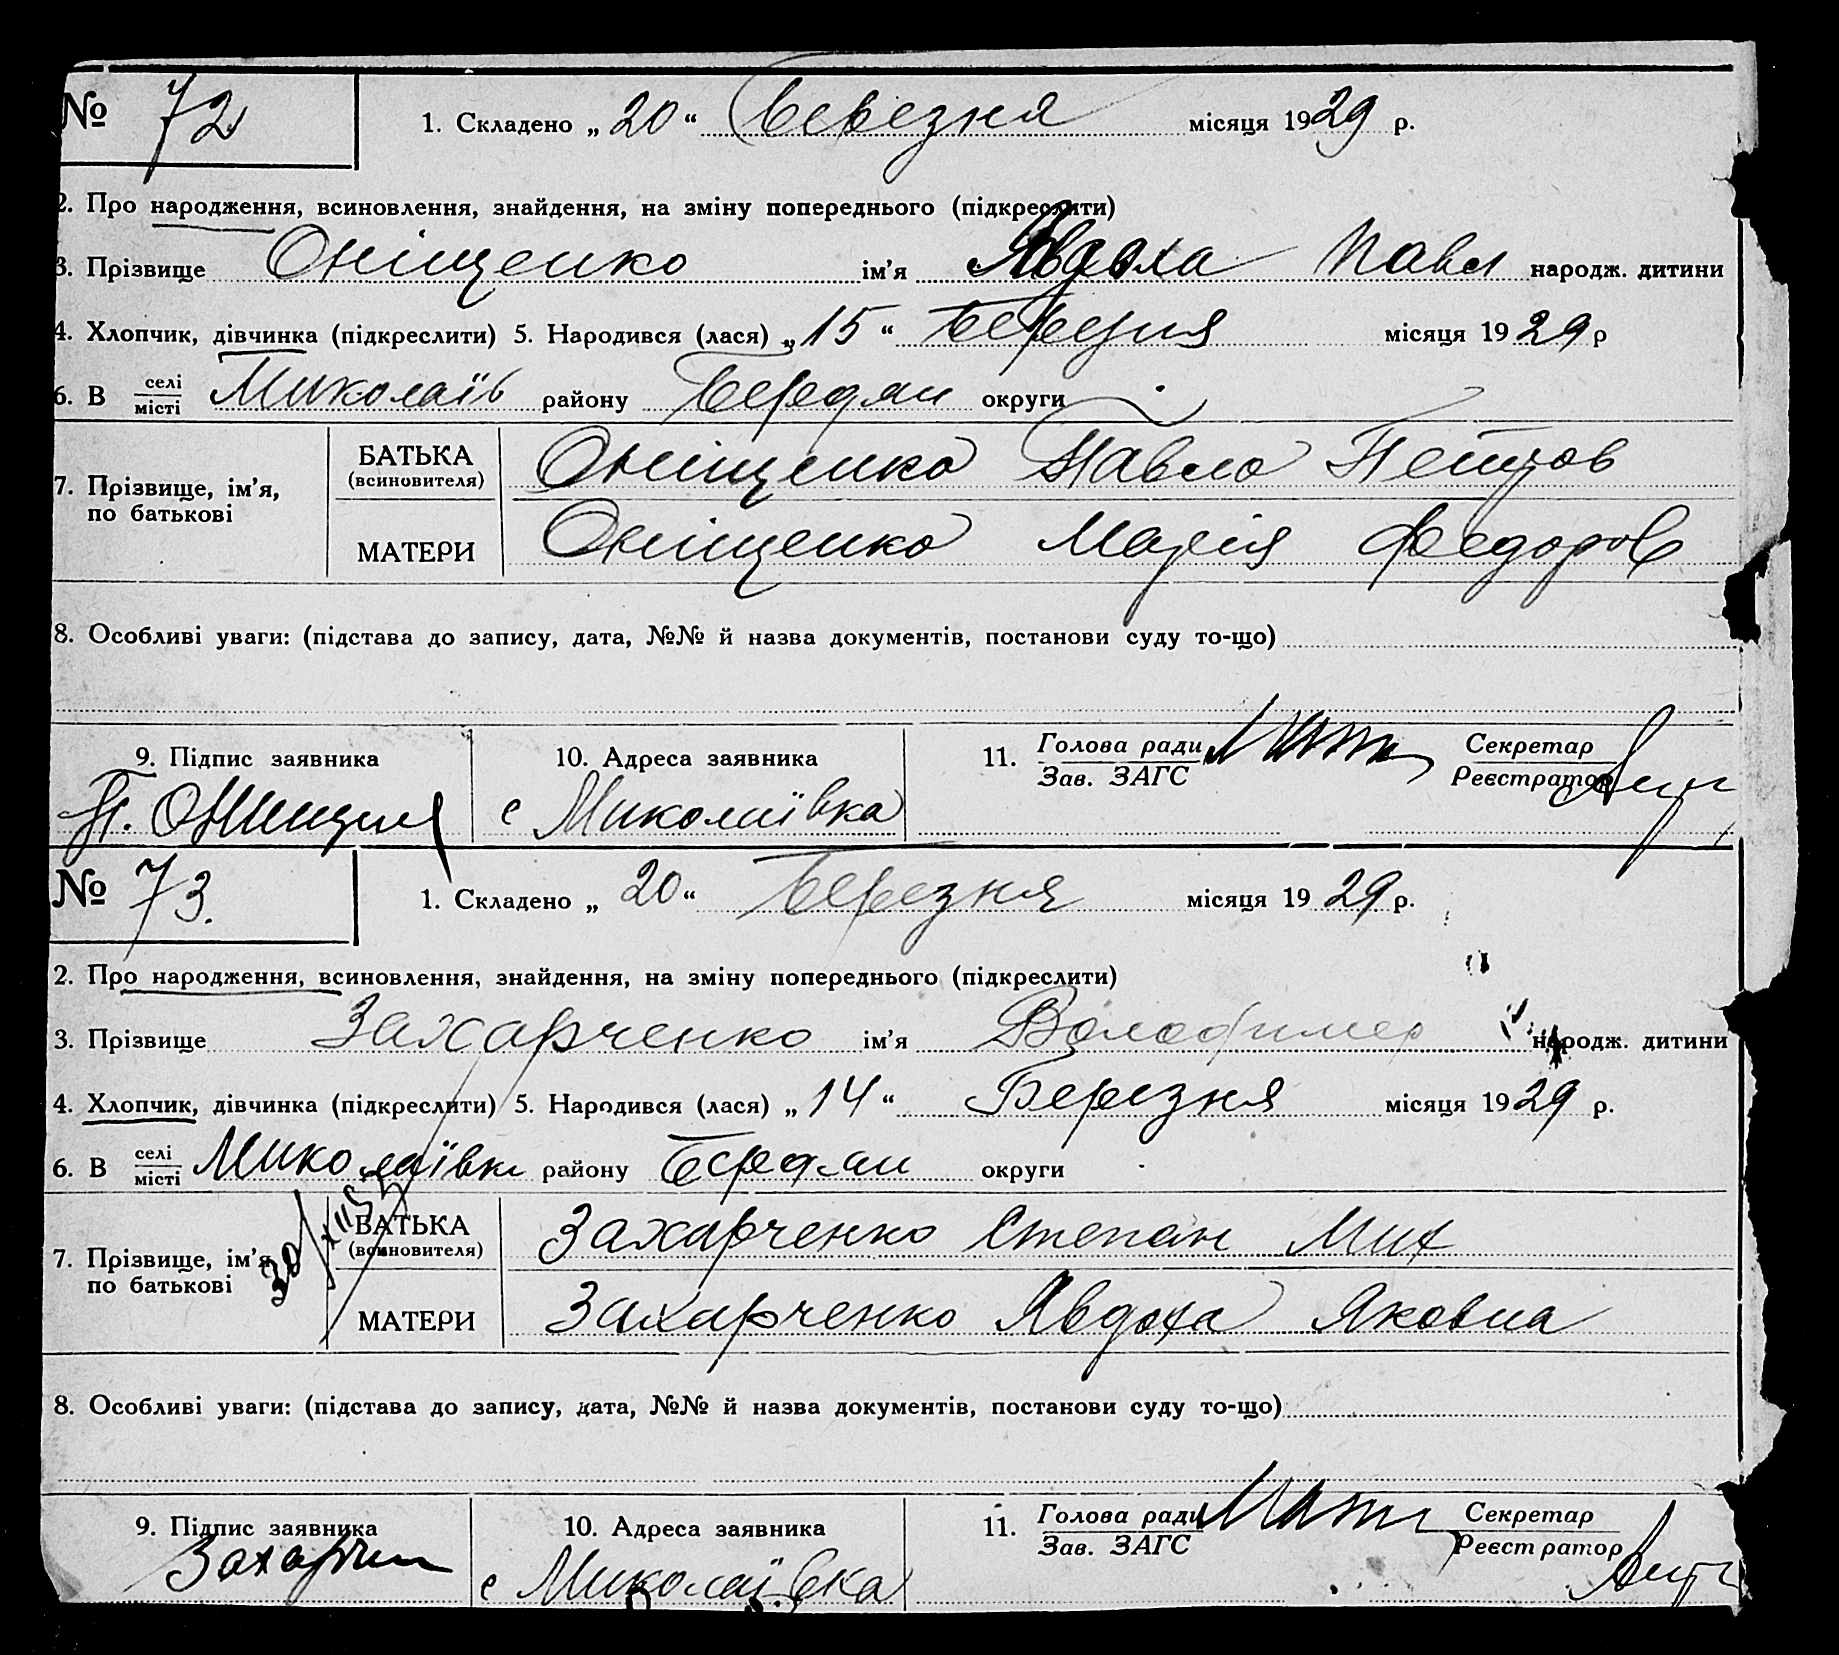 № 72 1. Складено „ 20 “ Березня місяця 1929 р.
2. Про народження, всиновлення, знайдення, на зміну попереднього (підкреслити)
3. Прізвище Оніщенко ім'я Павл народж. дитини
4. Хлопчик, дівчинка (підкреслити) 5. Народився (лася) „ 15 “ Березня місяця 1929 р
6. В селі/місті Миколаїв району Бердян округи
7. Прізвище, ім'я, по батькові БАТЬКА (всиновителя) Оніщенко Павло Петров
МАТЕРИ Оніщенко Марія Феодоров
8. Особливі уваги: (підстава до запису, дата, №№ й назва документів, постанови суду то-що)
9. Підпис заявника 10. Адреса заявника 11. Голова ради Секретар
Зав. ЗАГС Реєстратор
П. с Миколаївка
№ 73. 1. Складено „ 20 “ Березня місяця 1929 р.
2. Про народження, всиновлення, знайдення, на зміну попереднього (підкреслити)
3. Прізвище Захарченко ім'я Володимер народж. дитини
4. Хлопчик, дівчинка (підкреслити) 5. Народився (лася) „ 14 “ Березня місяця 1929 р.
6. В селі/місті Миколаївк району Бердян округи
7. Прізвище, ім'я по батькові БАТЬКА (всиновителя) Захарченко Степан Мих
МАТЕРИ Захарченко Явдоха Яковна
8. Особливі уваги: (підстава до запису, дата, №№ й назва документів, постанови суду то-що)
9. Підпис заявника 10. Адреса заявника 11. Голова ради Секретар
Зав. ЗАГС Реєстратор
с Миколаївка